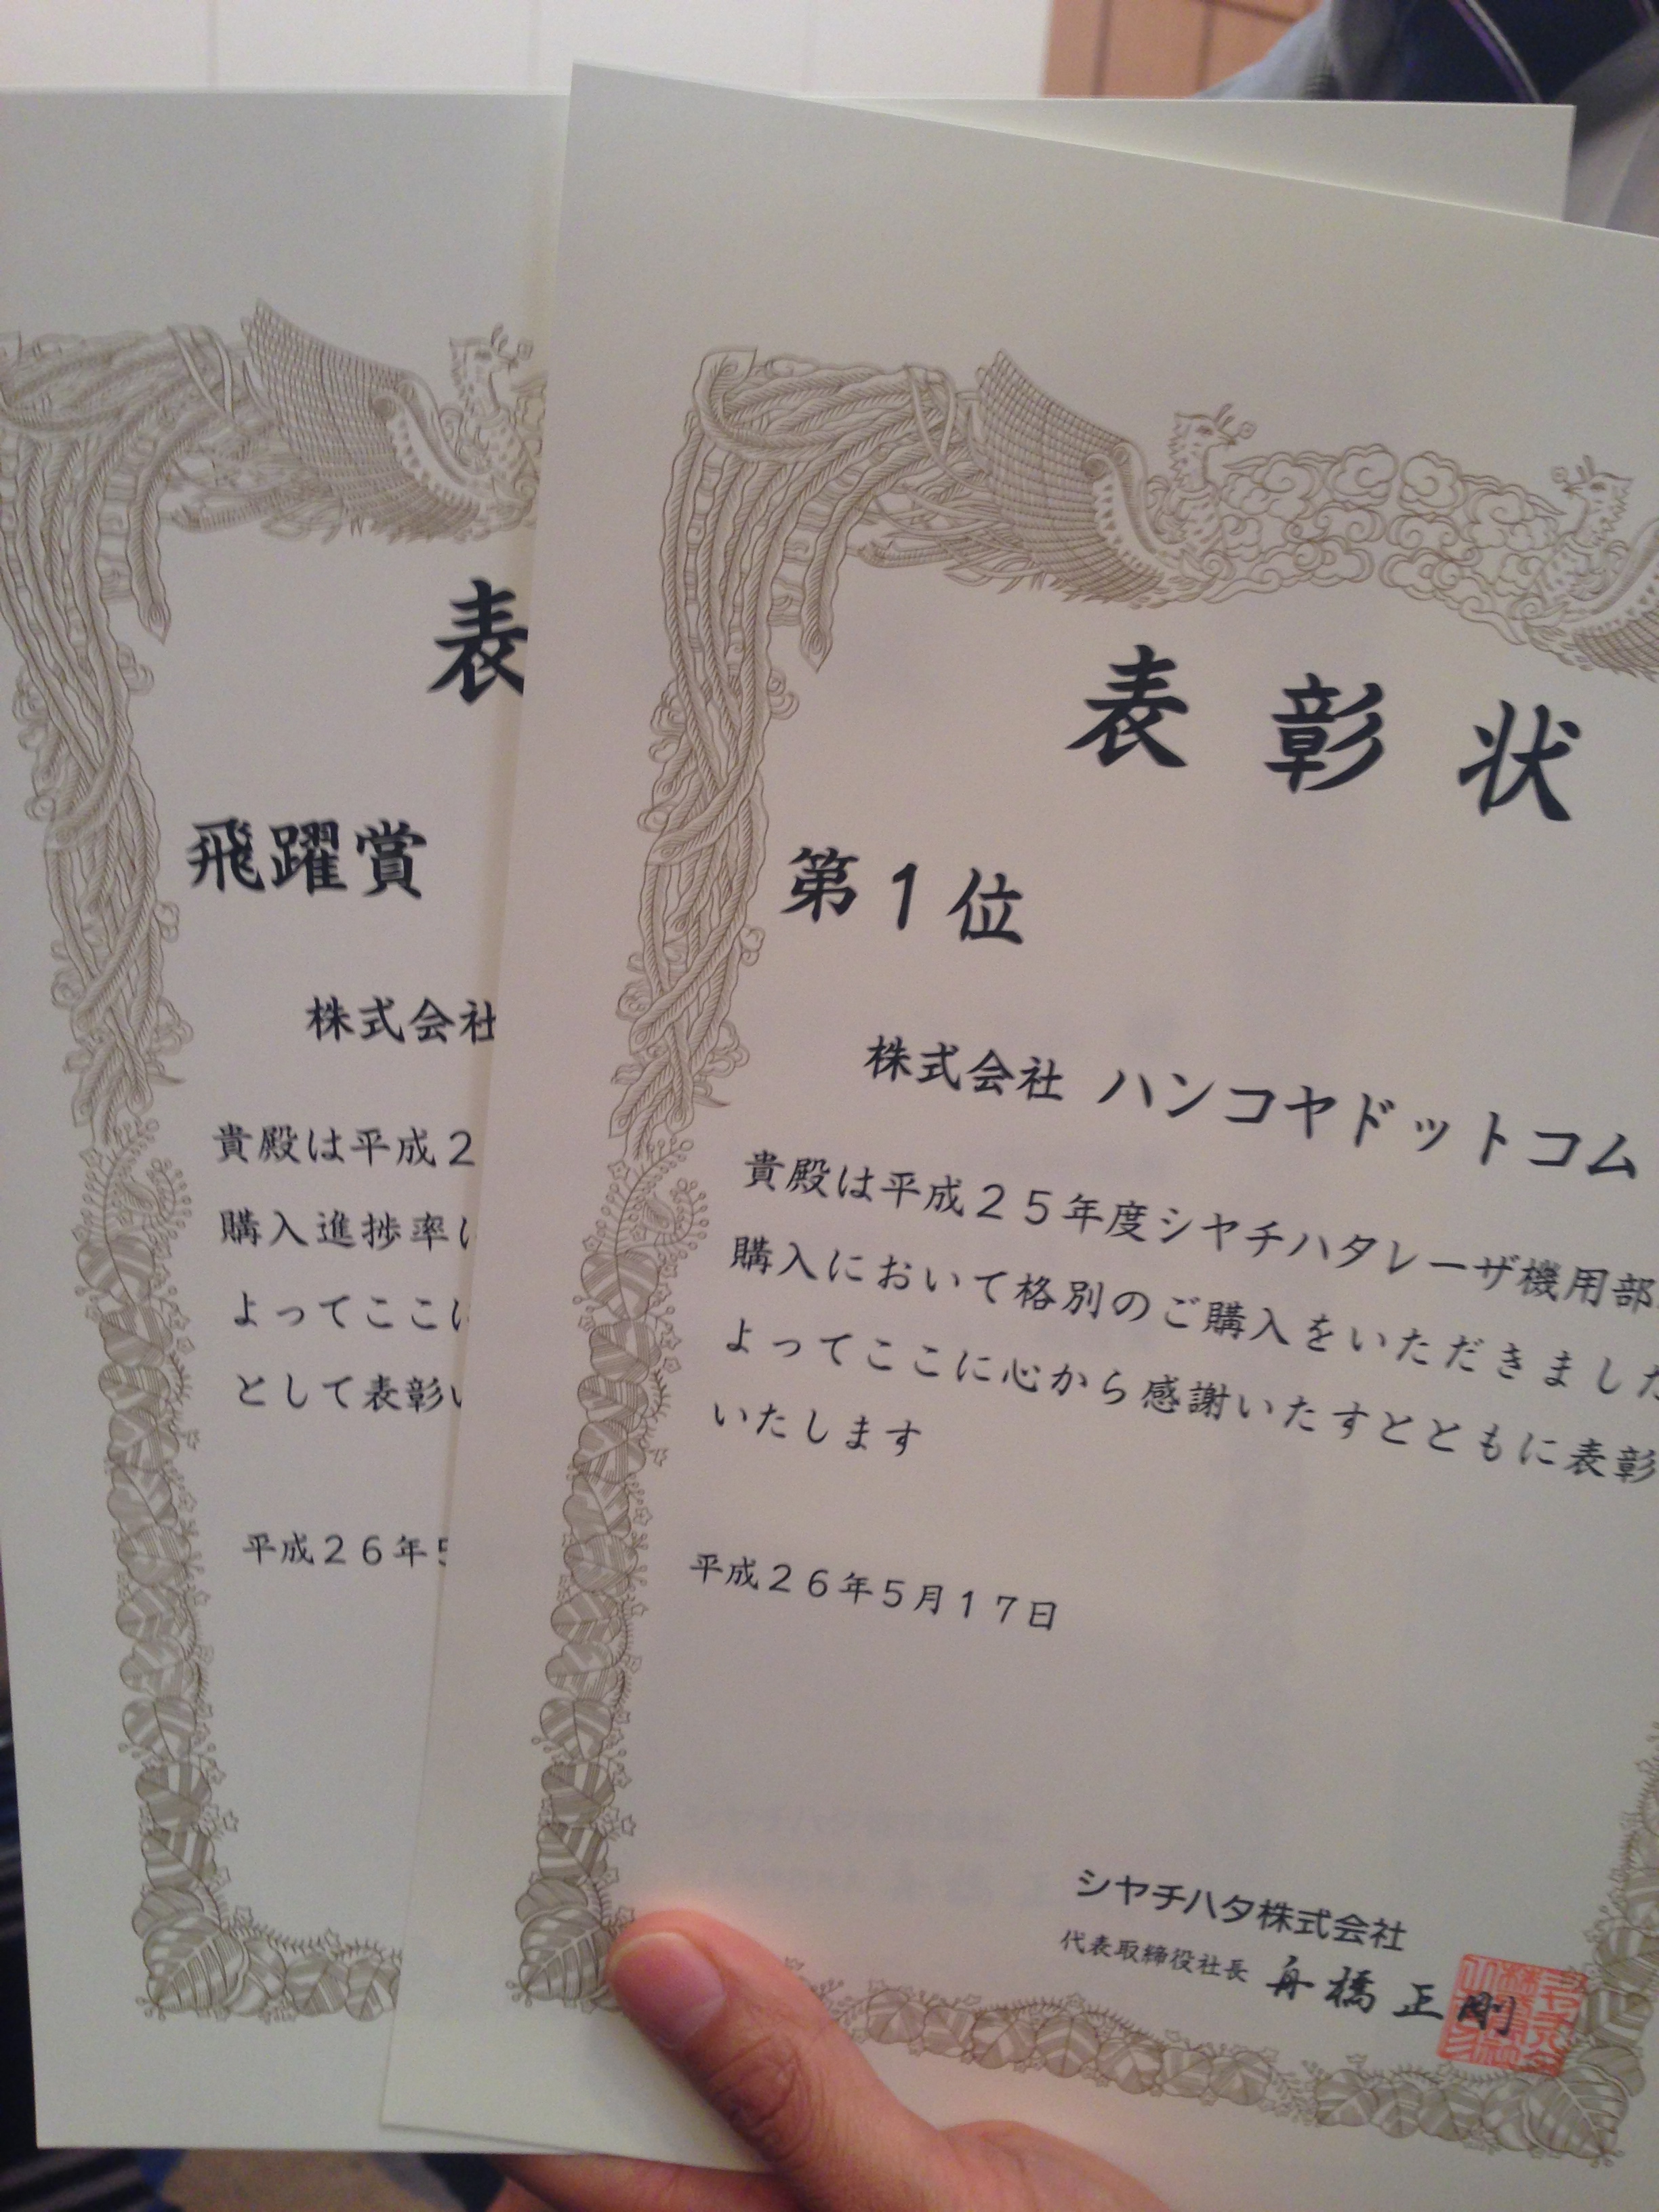 表
飛躍賞
株式会社
貴殿は平成2
購入進捗率
よってここに
として表彰い
平成26年5
表彰状
第1位
株式会社 ハンコヤドットコム
貴殿は平成25年度シヤチハタレーザ機用部
購入において格別のご購入をいただきました
よってここに心から感謝いたすとともに表彰
いたします
平成26年5月17日
シヤチハタ株式会社
代表取締役社長 舟橋正剛